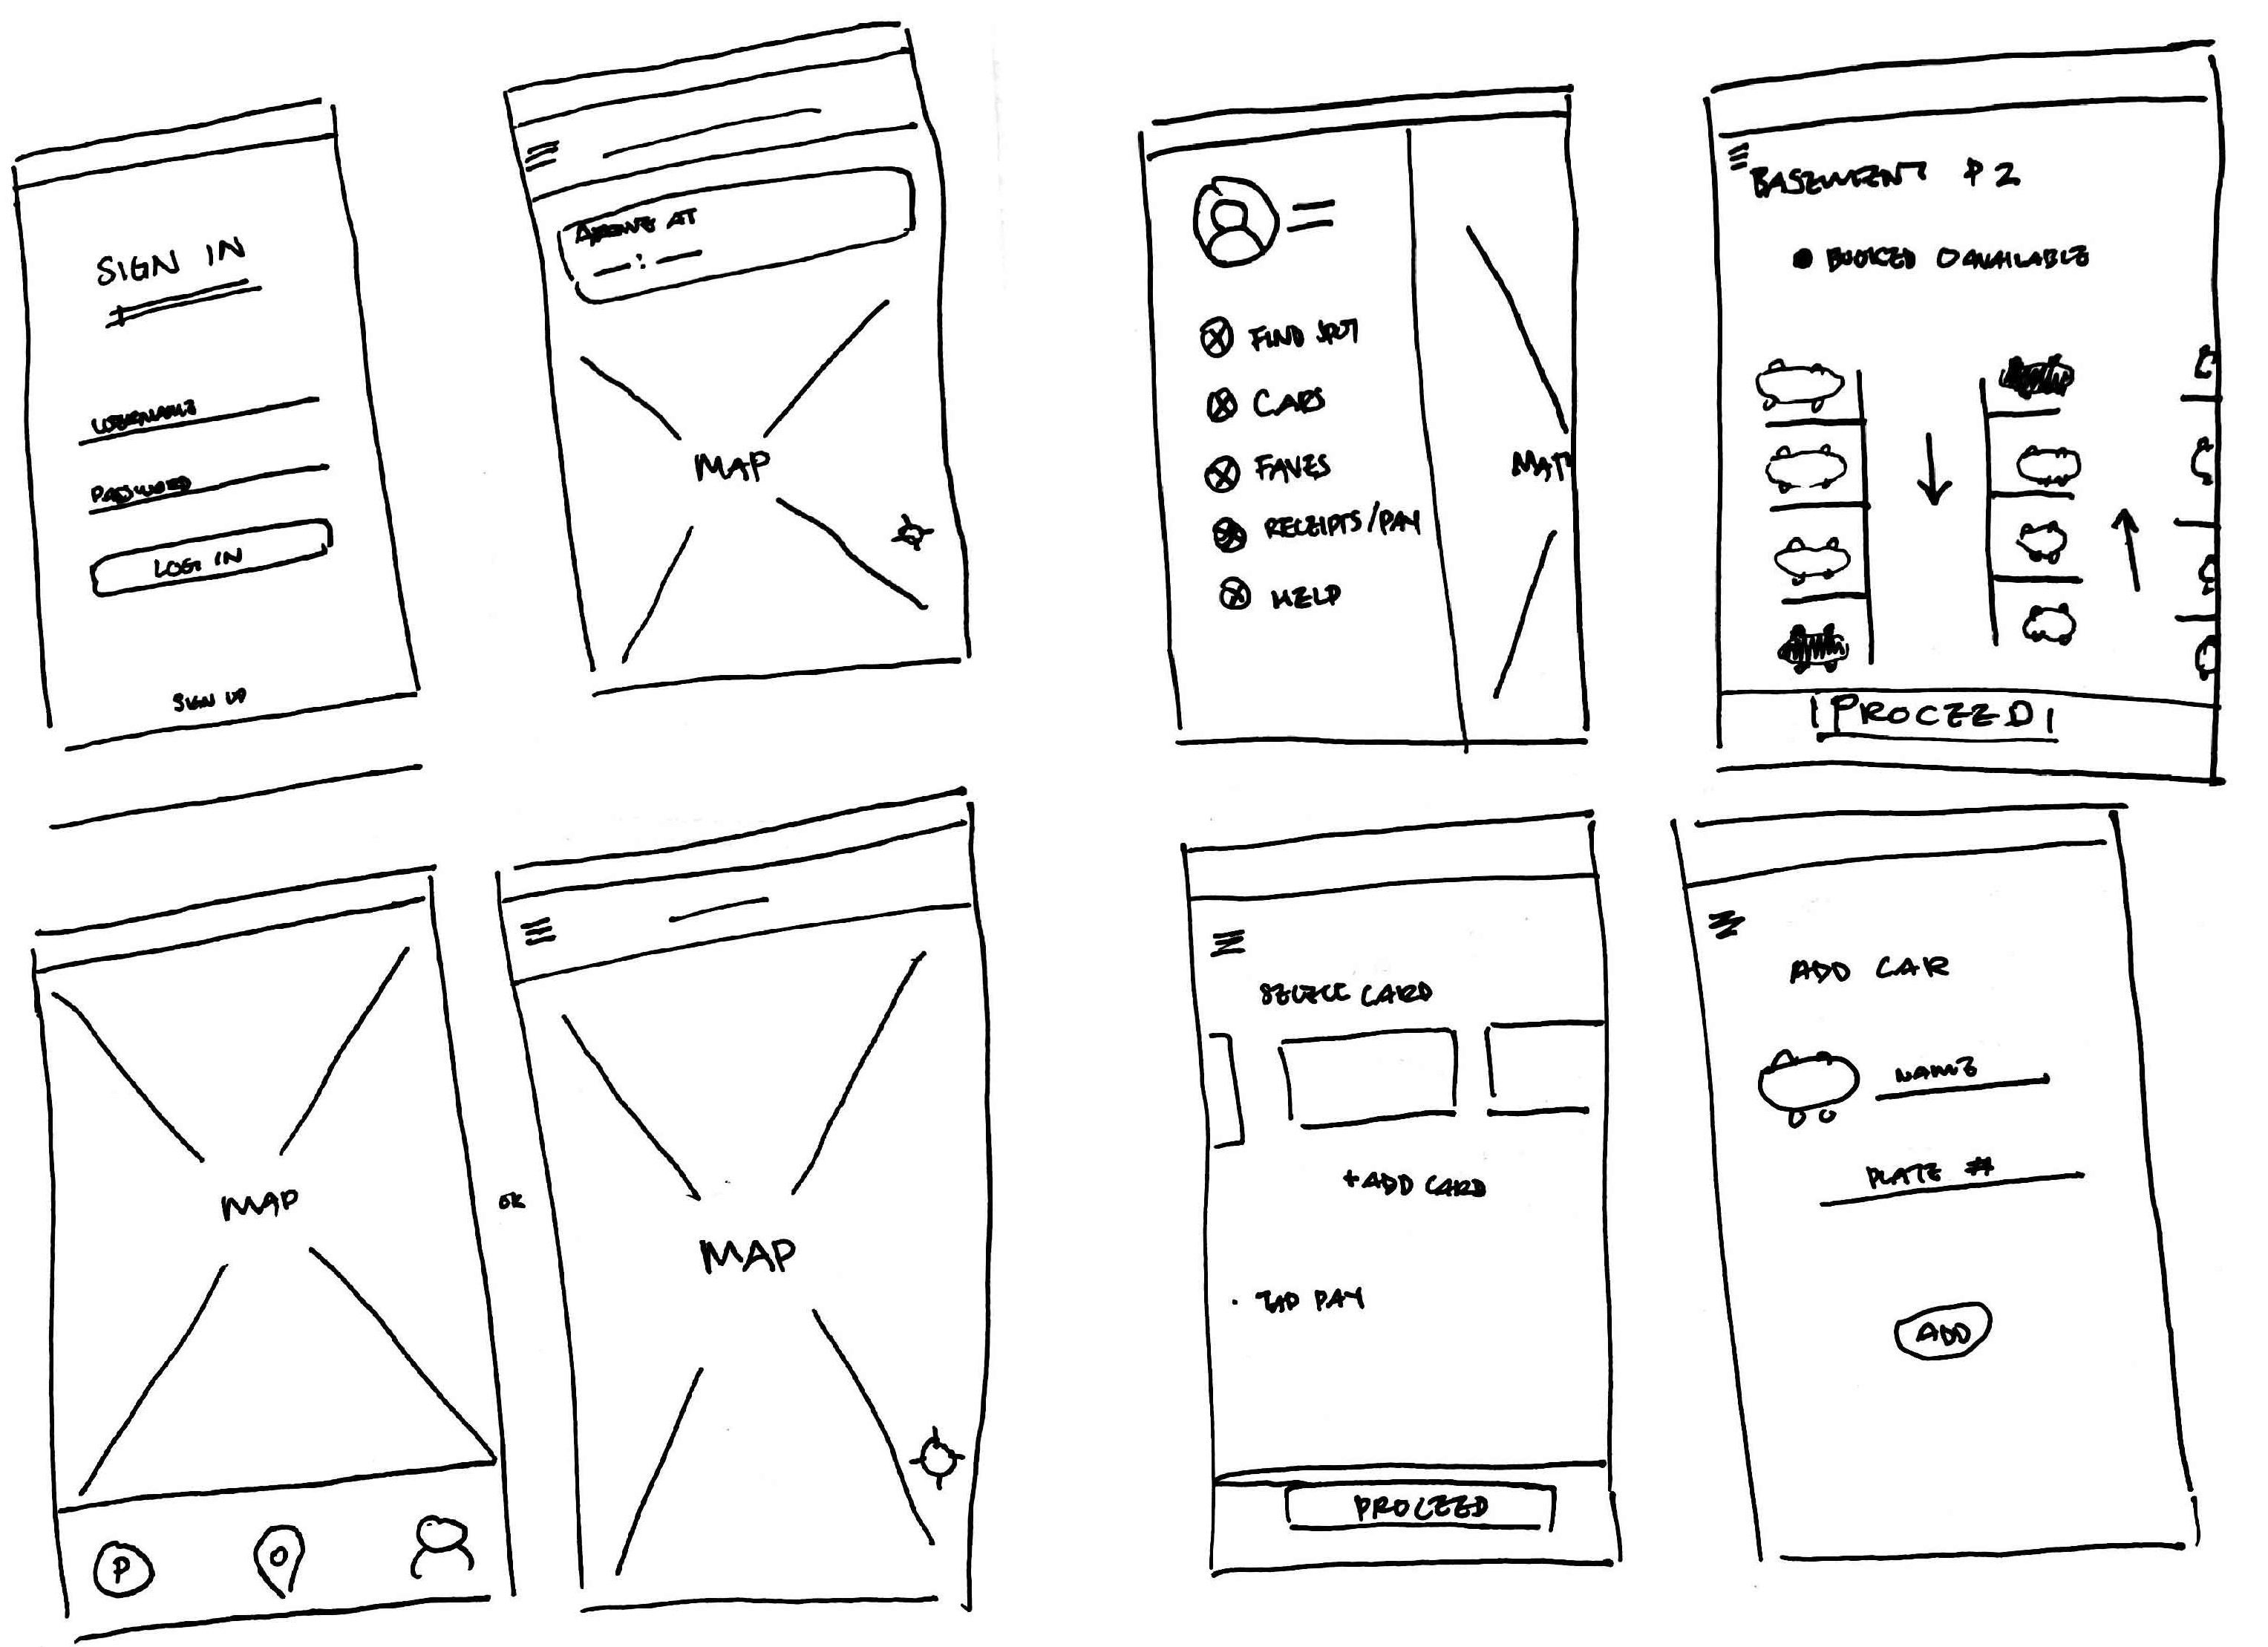 SIGN IN
USERNAME
PASSWORD
LOG IN
SIGN UP
ARRIVE AT
— : —
MAP
FIND SPOT
CARS
FAVES
RECEIPTS/PAY
HELP
MAP
BASEMENT P2
● BOOKED O AVAILABLE
PROCEED
MAP
P
OR
MAP
SELECT CARD
+ ADD CARD
· TAP PAY
PROCEED
ADD CAR
NAME
PLATE #
ADD